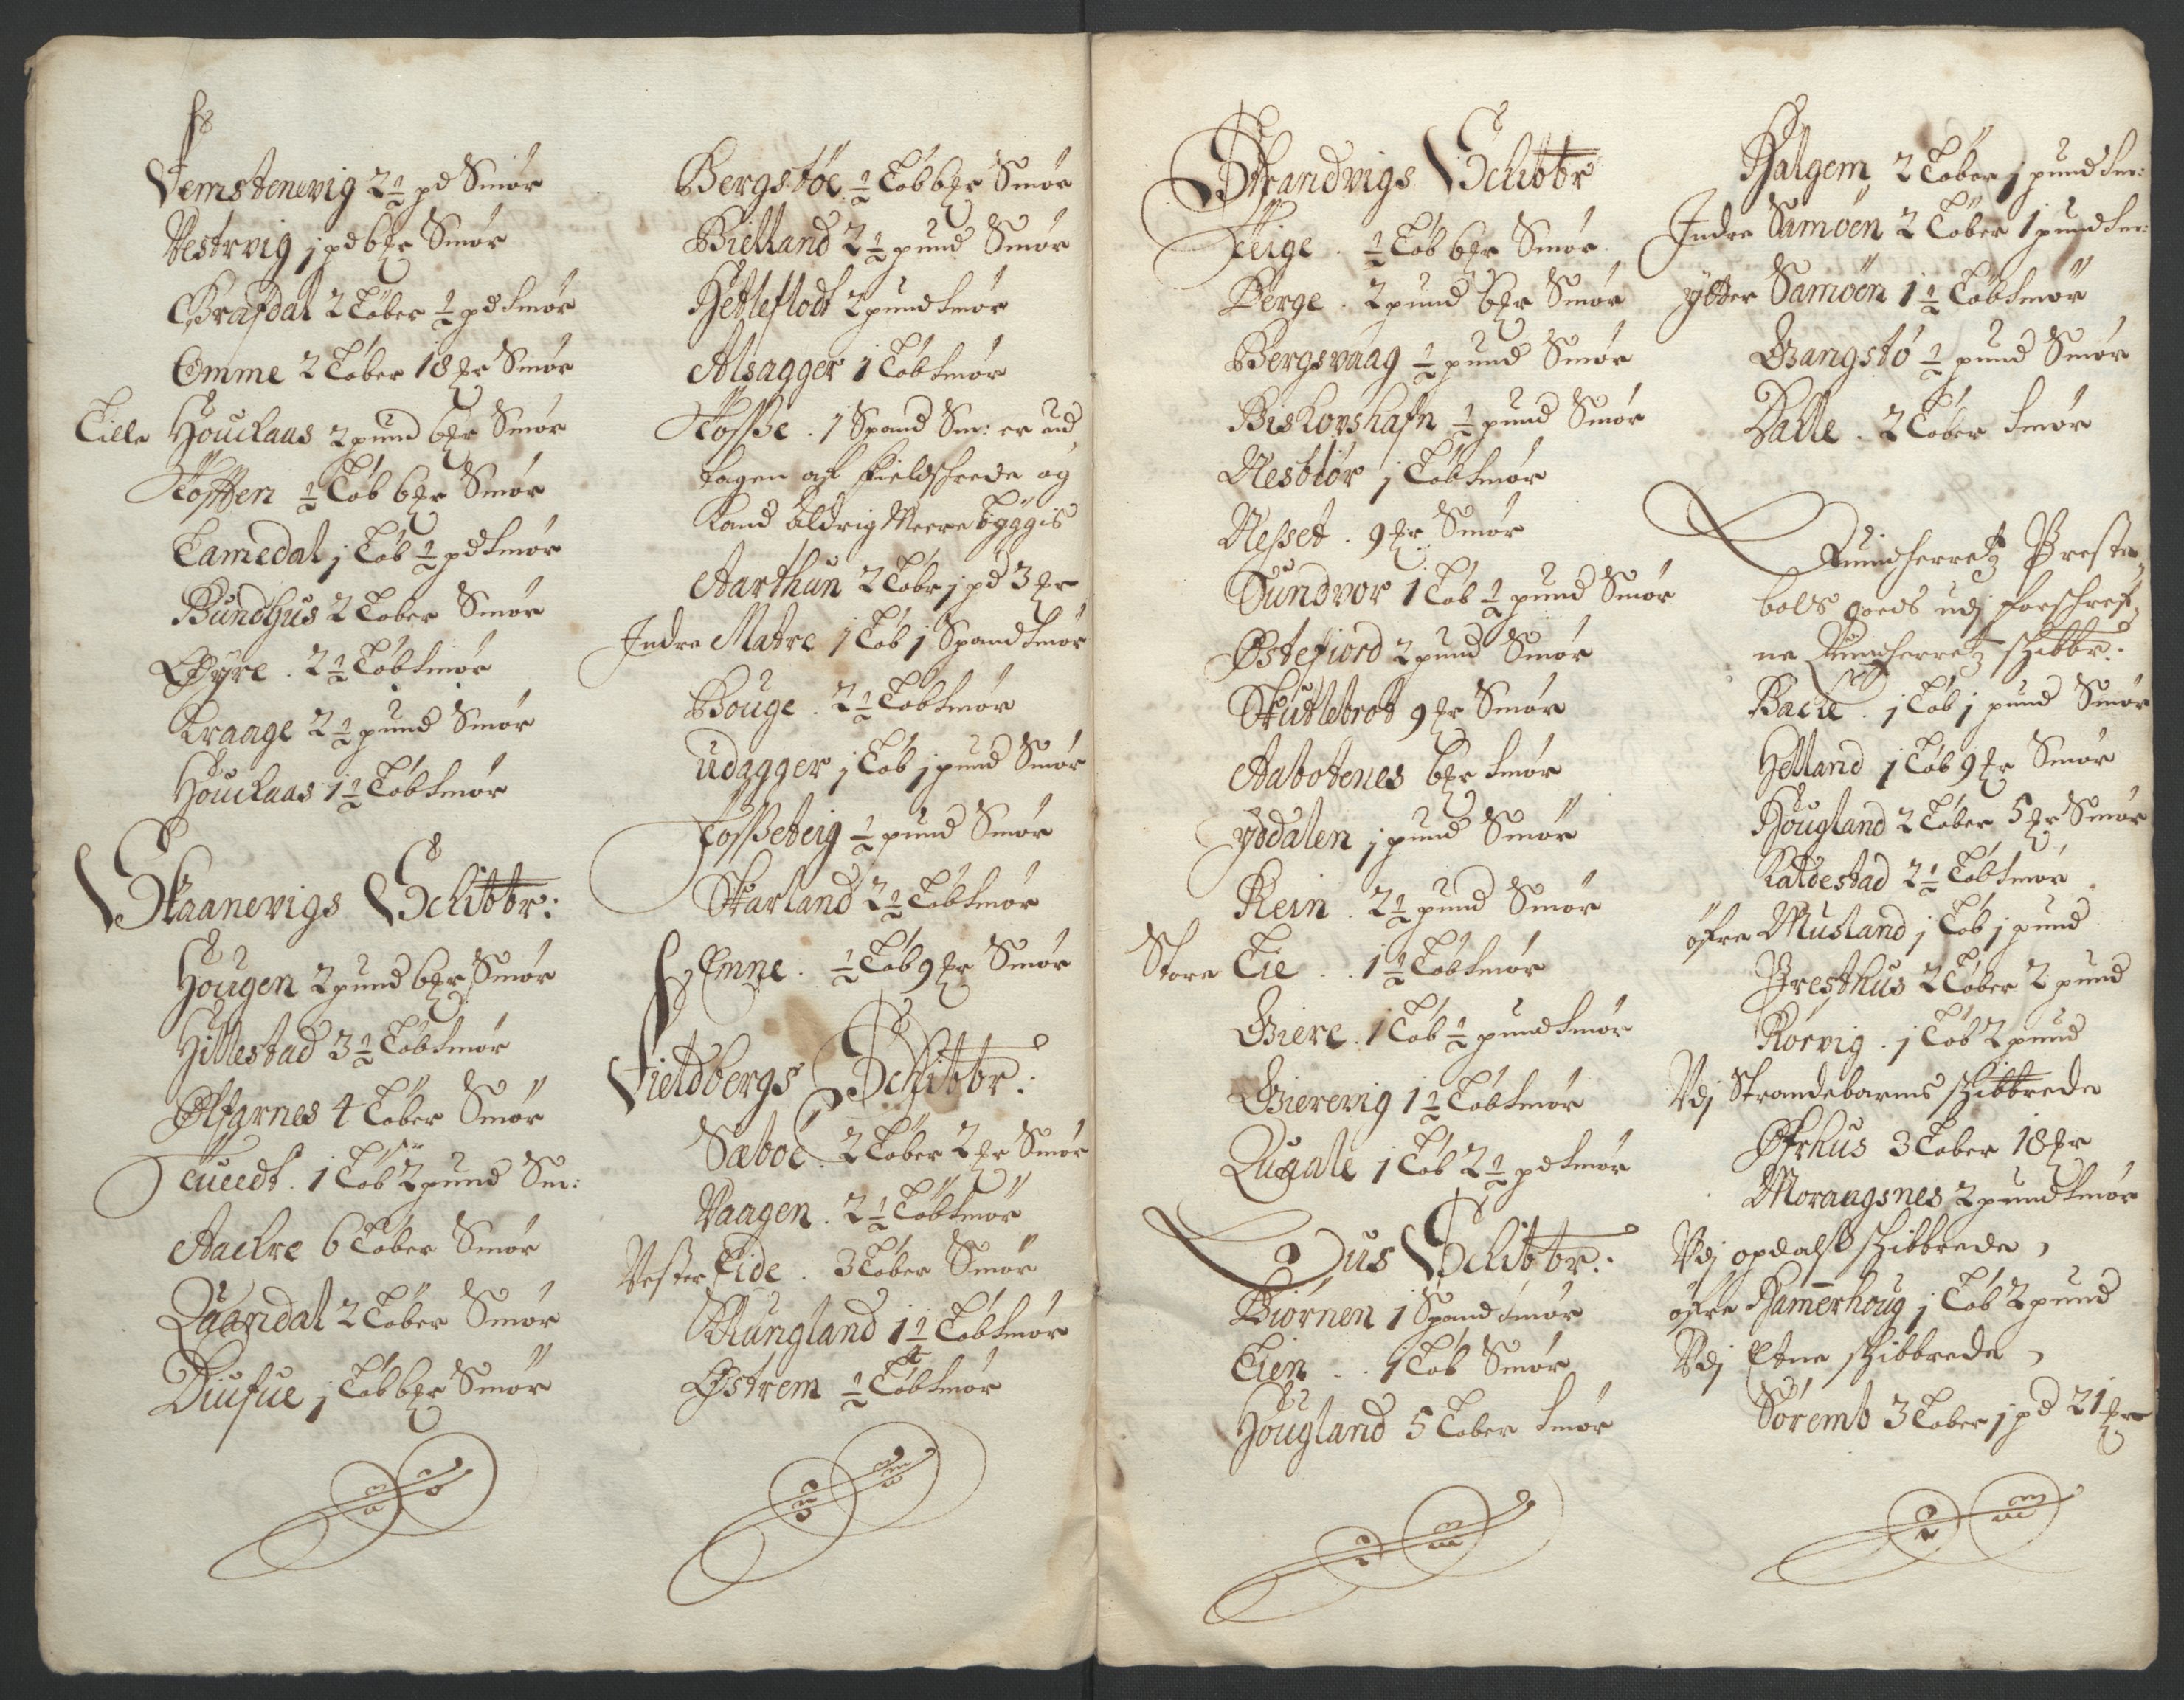 Femstenevig 2½ pd Smør
Vestrvig j pd 6 ℔r Smør
Grafdal 2 Løber ½ pd smør
Omme 2 Løber 18 ℔r Smør
Lille Houckaas 2 pund 6 ℔r Smør
Tofften ½ Løb 6 ℔r Smør
Lamedal j Løb ½ pd smør
Bundhus 2 Løber Smør
Øyre . 2½ Løb smør
Kraage 2½ pund Smør
Houckaas 1½ Løb smør
Skaanevigs Schibbr:
Hougen 2 pund 6 ℔r Smør
Hillestad 3½ Løb smør
Ølfarnes 4 Løber Smør
Tueedt . 1 Løb 2 pund Sm:
Aackre 6 Løber Smør
Quandal 2 Løber Smør
Diufue j Løb 6 ℔r Smør
Bergstøe ½ Løb 6 ℔r Smør
Bielland 2½ pund Smør
Hetleflodt 2 pund smør
Alsagger 1 Løb smør
Fosse . 1 Spand Sm: er aud
tagen af fieldschrede og
kand aldrig Meere byggis
Aarthun 2 Løbr j pd 3 ℔r
Indre Matre 1 Løb j Spand smør
Bouge . 2½ Løb smør
Udagger j Løb j pund Smør
Fosseteig ½ pund Smør
Skarland 2½ Løb smør
Emne . ½ Løb 9 ℔r Smør
Fieldbergs Schibbr:
Sæboe . 2 Løber 2 ℔r Smør
Vaagen . 2½ Løb smør
Vester Eide . 3 Løber Smør
Mungland 1½ Løb smør
Østrem ½ Løb smør
Strandvigs Schibbr
Teige . ½ Løb 6 ℔r Smør
Berge . 2 pund 6 ℔r Smør
Bergsvaag ½ pund Smør
Biskopshafn ½ pund Smør
Nesbiør j Løb smør
Nesset . 9 ℔r Smør
Sundvor 1 Løb ½ pund Smør
Østefiord 2 pund Smør
Skutlebrot 9 ℔r Smør
Aabotenes 6 ℔r smør
Yddalen j pund Smør
Rein . 2½ pund Smør
Store Lie . . 1½ Løb smør
Giere . 1 Løb ½ pund smør
Gierevig 1½ Løb smør
Quale 1 Løb 2½ pd smør
Ous Schibbr:
Biørnen 1 Spand smør
Lien . . 1 Løb Smør
Hougland 5 Løber smør
Halgem 2 Løber j pund sm:
Indre Samøen 2 Løber 1 pund sm:
ytter Samøen 1½ Løb smør
Gangstø ½ pund Smør
Dalle . 2 Løber smør
Quindherretz Preste
bols goeds udj forschref
ne Quindherretz skibbr:
Backe . j Løb j pund Smør
Helland j Løb 9 ℔r Smør
Hougland 2 Løber 5 ℔r Smør
Kaldestad 2½ Løb smør
øfre Musland j Løb j pund
Presthus 2 Løber 2 pund
Rørvig . j Løb 2 pund
Vdj Strandebarms skibbrede
Øfrhus 3 Løber 18 ℔r
Morangsnes 2 pund smør
Vdj opdals skibbrede
øfre Hamerhoug j Løb 2 pund
Vdj Etne skibbrede
Søremb 3 Løber j pd 21 ℔r